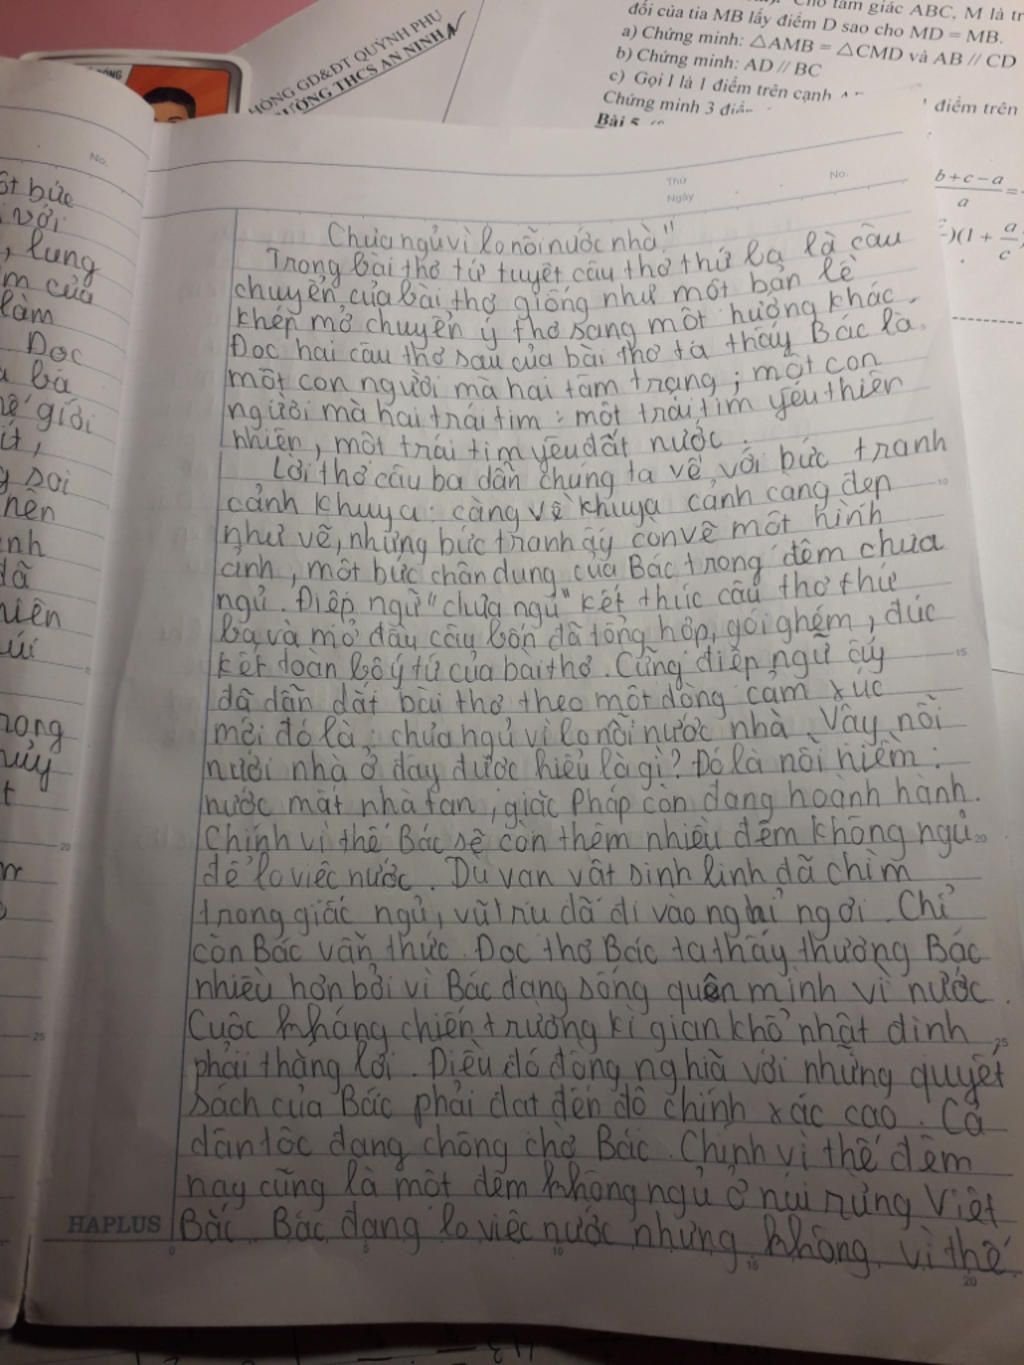 HÒNG GD&ĐT QUỲNH PHỤ
ƯỜNG THCS AN NINH
tam giác ABC, M là tr
đối của tia MB lấy điểm D sao cho MD = MB.
a) Chứng minh: △AMB = △CMD và AB // CD
b) Chứng minh: AD // BC
c) Gọi I là 1 điểm trên cạnh
điểm trên
Chứng minh 3
Bài 5
b + c − a
a
)(1 + a
c
No.
ột bức
với
, lung
m của
làm
Đọc
bà
hế giới
ít,
soi
nên
nh
đã
hiên
rong
t
Thứ
Ngày
No.
Chưa ngủ vì lo nỗi nước nhà"
Trong bài thơ tứ tuyệt câu thơ thứ ba là câu
chuyển của bài thơ giống như một bản lề
khép mở chuyển ý thơ sang một hướng khác.
Đọc hai câu thơ sau của bài thơ ta thấy Bác là
một con người mà hai tâm trạng ; một con
người mà hai trái tim : một trái tim yêu thiên
nhiên, một trái tim yêu đất nước.
Lời thơ câu ba dẫn chúng ta về với bức tranh
cảnh khuya : càng về khuya cảnh càng đẹp
như vẽ, những bức tranh ấy con vẽ một hình
ảnh, một bức chân dung của Bác trong đêm chưa
ngủ. Điệp ngữ "chưa ngủ" kết thúc câu thơ thứ
ba và mở đầu câu bốn đã tổng hợp, gói ghém, đúc
kết toàn bộ ý tứ của bài thơ. Cũng điệp ngữ ấy
đã dẫn dắt bài thơ theo một dòng cảm xúc
mới đó là : chưa ngủ vì lo nỗi nước nhà. Vậy nỗi
nước nhà ở đây được hiểu là gì? Đó là nỗi niềm :
nước mất nhà tan, giặc Pháp còn đang hoành hành.
Chính vì thế Bác sẽ còn thêm nhiều đêm không ngủ
để lo việc nước. Dù vạn vật sinh linh đã chìm
trong giấc ngủ, vũ trụ đã đi vào nghỉ ngơi. Chỉ
còn Bác vẫn thức. Đọc thơ Bác ta thấy thương Bác
nhiều hơn bởi vì Bác đang sống quên mình vì nước.
Cuộc kháng chiến trường kì gian khổ nhất định
phải thắng lợi. Điều đó đồng nghĩa với những quyết
sách của Bác phải đạt đến độ chính xác cao. Cả
dân tộc đang chông chờ Bác. Chính vì thế đêm
nay cũng là một đêm không ngủ ở núi rừng Việt
Bắc. Bác đang lo việc nước nhưng không vì thế
HAPLUS
0 5 10 15 20